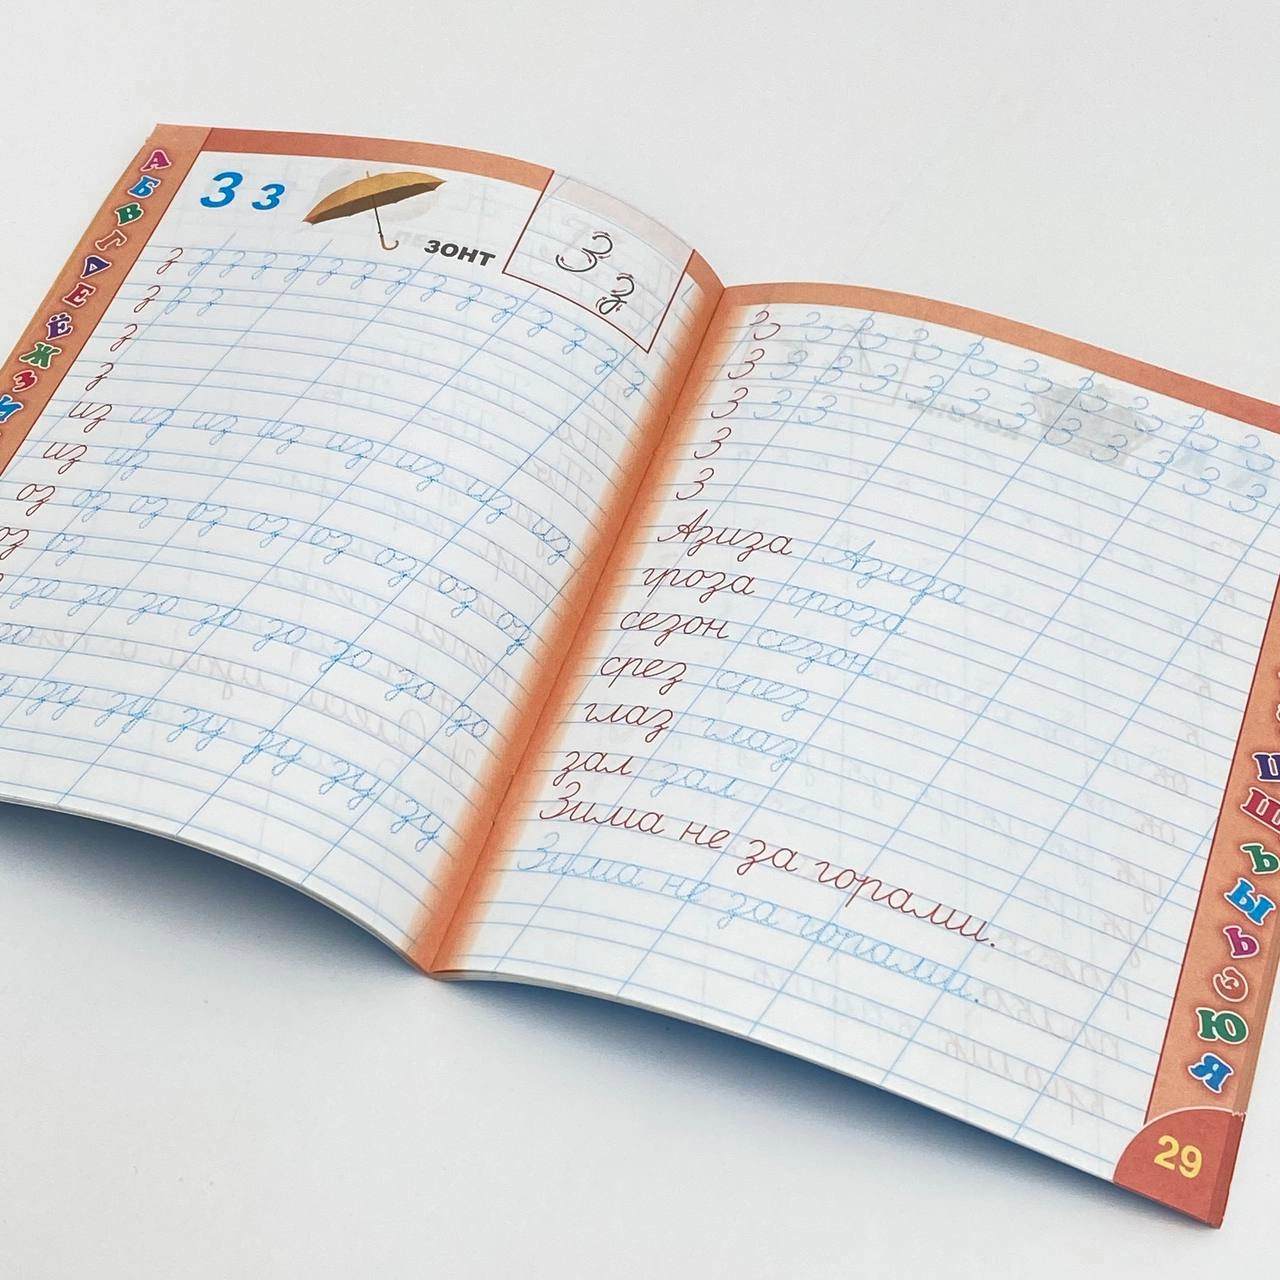 А
Б
В
Г
Д
Е
Ё
Ж
З
И
З з
зонт
З з
з з з з з з з з з з з з з з
з з з
з
з
из из из из из из из из
из из
оз оз оз оз оз оз оз оз оз
оз оз
зо зо зо зо зо зо зо зо
зо
зу зу зу зу зу зу зу
З З З З З З З З З З
З З З З З З З З З З З З
З З З
З
З
Азиза Азиза
гроза гроза
сезон сезон
срез срез
глаз глаз
зал зал
Зима не за горами.
Зима не за горами.
Ш
Щ
Ъ
Ы
Ь
Э
Ю
Я
29